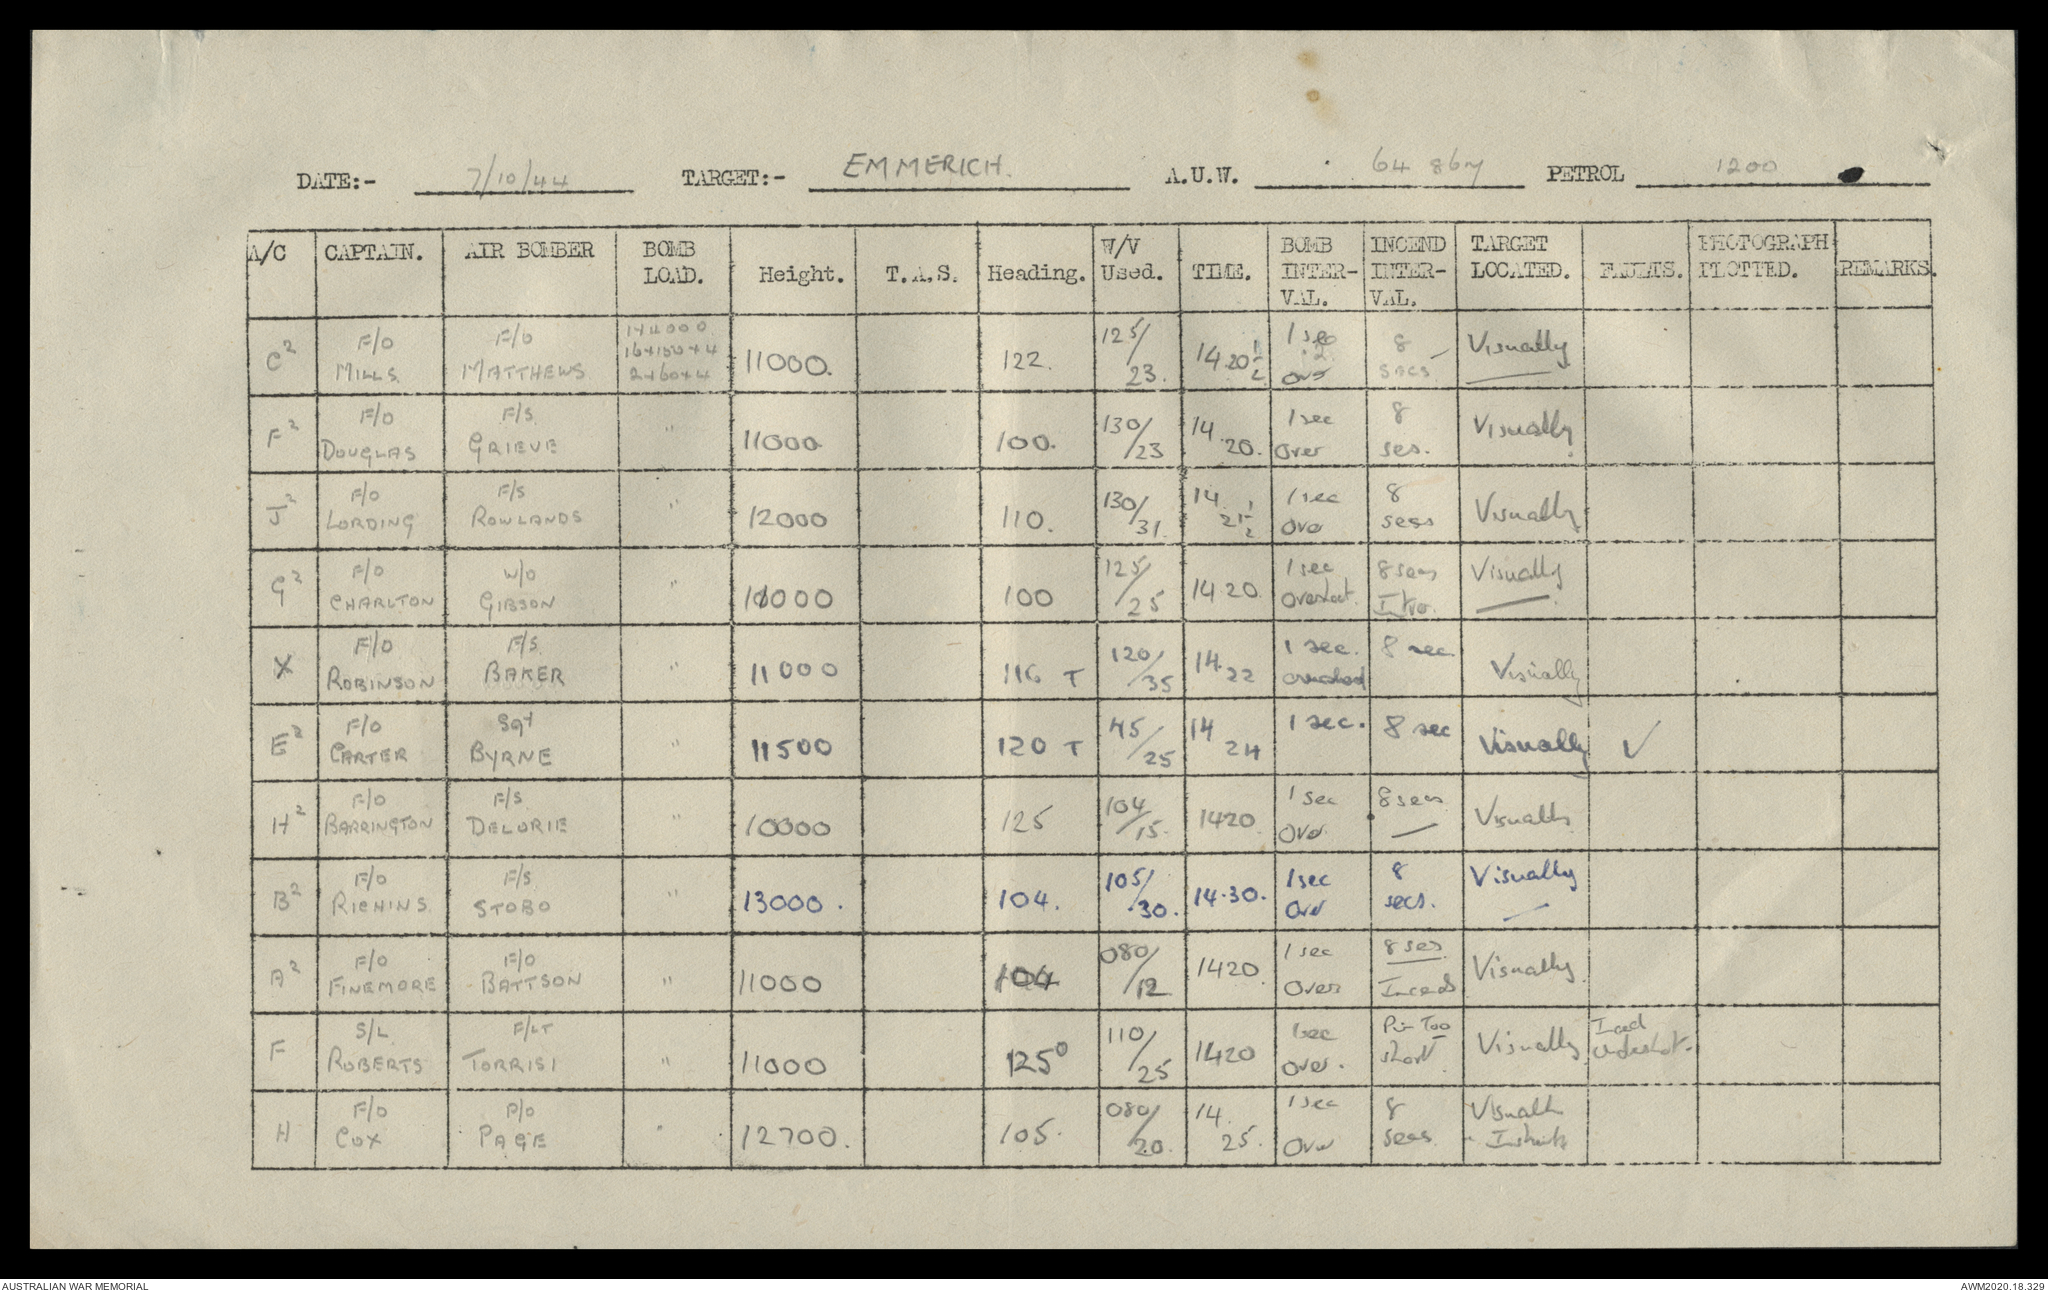 DATE:- 7/10/44 TARGET:- EMMERICH. A.U.W. 64 867 PETROL 1200
A/C CAPTAIN. AIR BOMBER BOMB LOAD. Height. T.A.S. Heading. W/V Used. TIME. BOMB INTER-VAL. INCEND INTER-VAL. TARGET LOCATED. FAULTS. PHOTOGRAPH PLOTTED. REMARKS.
C² F/O MILLS F/O MATTHEWS 1x4000 16x150x4 2x60x4 11000. 122. 125/23. 14.20½ 1 sec over 8 secs Visually
F² F/O DOUGLAS F/S. GRIEVE " 11000 100. 130/23 14.20. 1 sec Over 8 secs. Visually
J² F/O LORDING F/S ROWLANDS " 12000 110. 130/31. 14.21½ 1 sec Over 8 secs Visually
G² F/O CHARLTON W/O GIBSON " 11000 100 125/25 14.20 1 sec Overshoot. 8 secs Visually
X F/O ROBINSON F/S. BAKER " 11000 116 T 120/35 14.22 1 sec. overshoot 8 sec. Visually
E² F/O CARTER Sgt BYRNE " 11500 120 T 45/25 14 24 1 sec. 8 sec Visually ✓
H² F/O BARRINGTON F/S. DELORIE " 10800 125 104/15. 1420. 1 sec Over. 8 secs Visually
B² F/O RICHINS F/S STOBO " 13000. 104. 105/30. 14.30. 1 sec Over 8 secs. Visually
A² F/O FINEMORE F/O BATTSON " 11000 104 080/12 1420. 1 sec Over 8 secs Incends Visually
F S/L ROBERTS F/LT TORRISI " 11000 125° 110/25 1420 1 sec Over. Pin Too short Visually Incd undershot.
H F/O COX P/O PAGE " 12700. 105. 080/20. 14.25. 1 sec Over 8 secs. Visually
AUSTRALIAN WAR MEMORIAL AWM2020.18.329